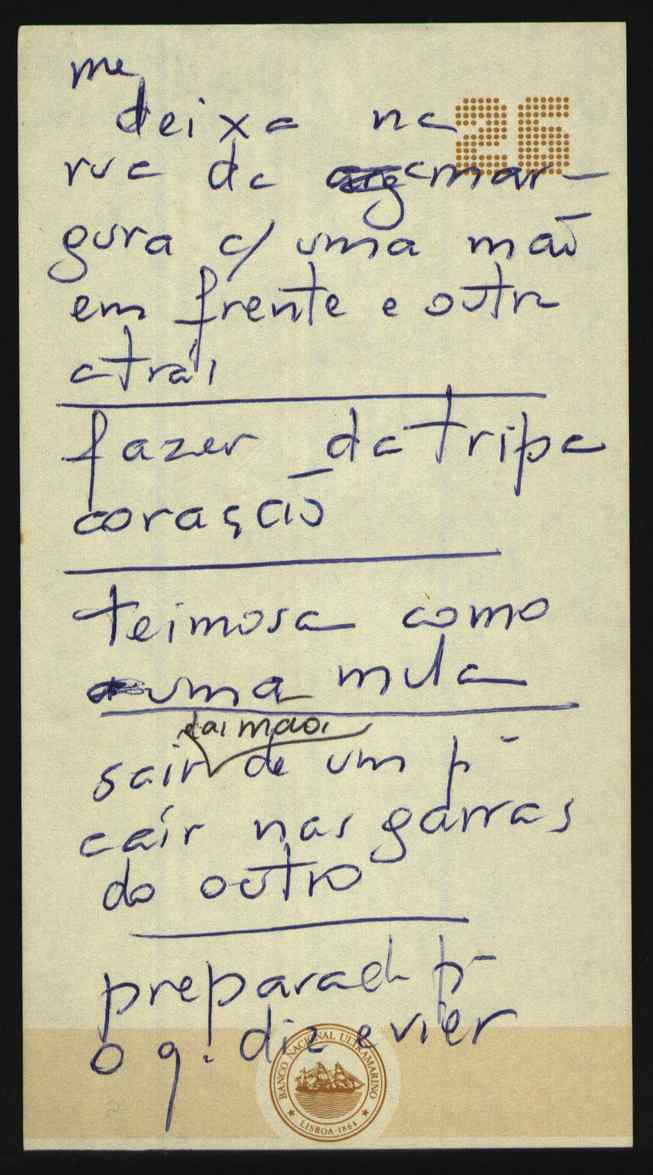 me
deixa na
26
rua da amar-
gura c/ uma mão
em frente e outra
atrás
fazer da tripa
coração
teimosa como
uma mula
das mãos
sair de um p-
cair nas garras
do outro
preparada p-
o q. e vier
BANCO NACIONAL ULTRAMARINO
LISBOA-1864